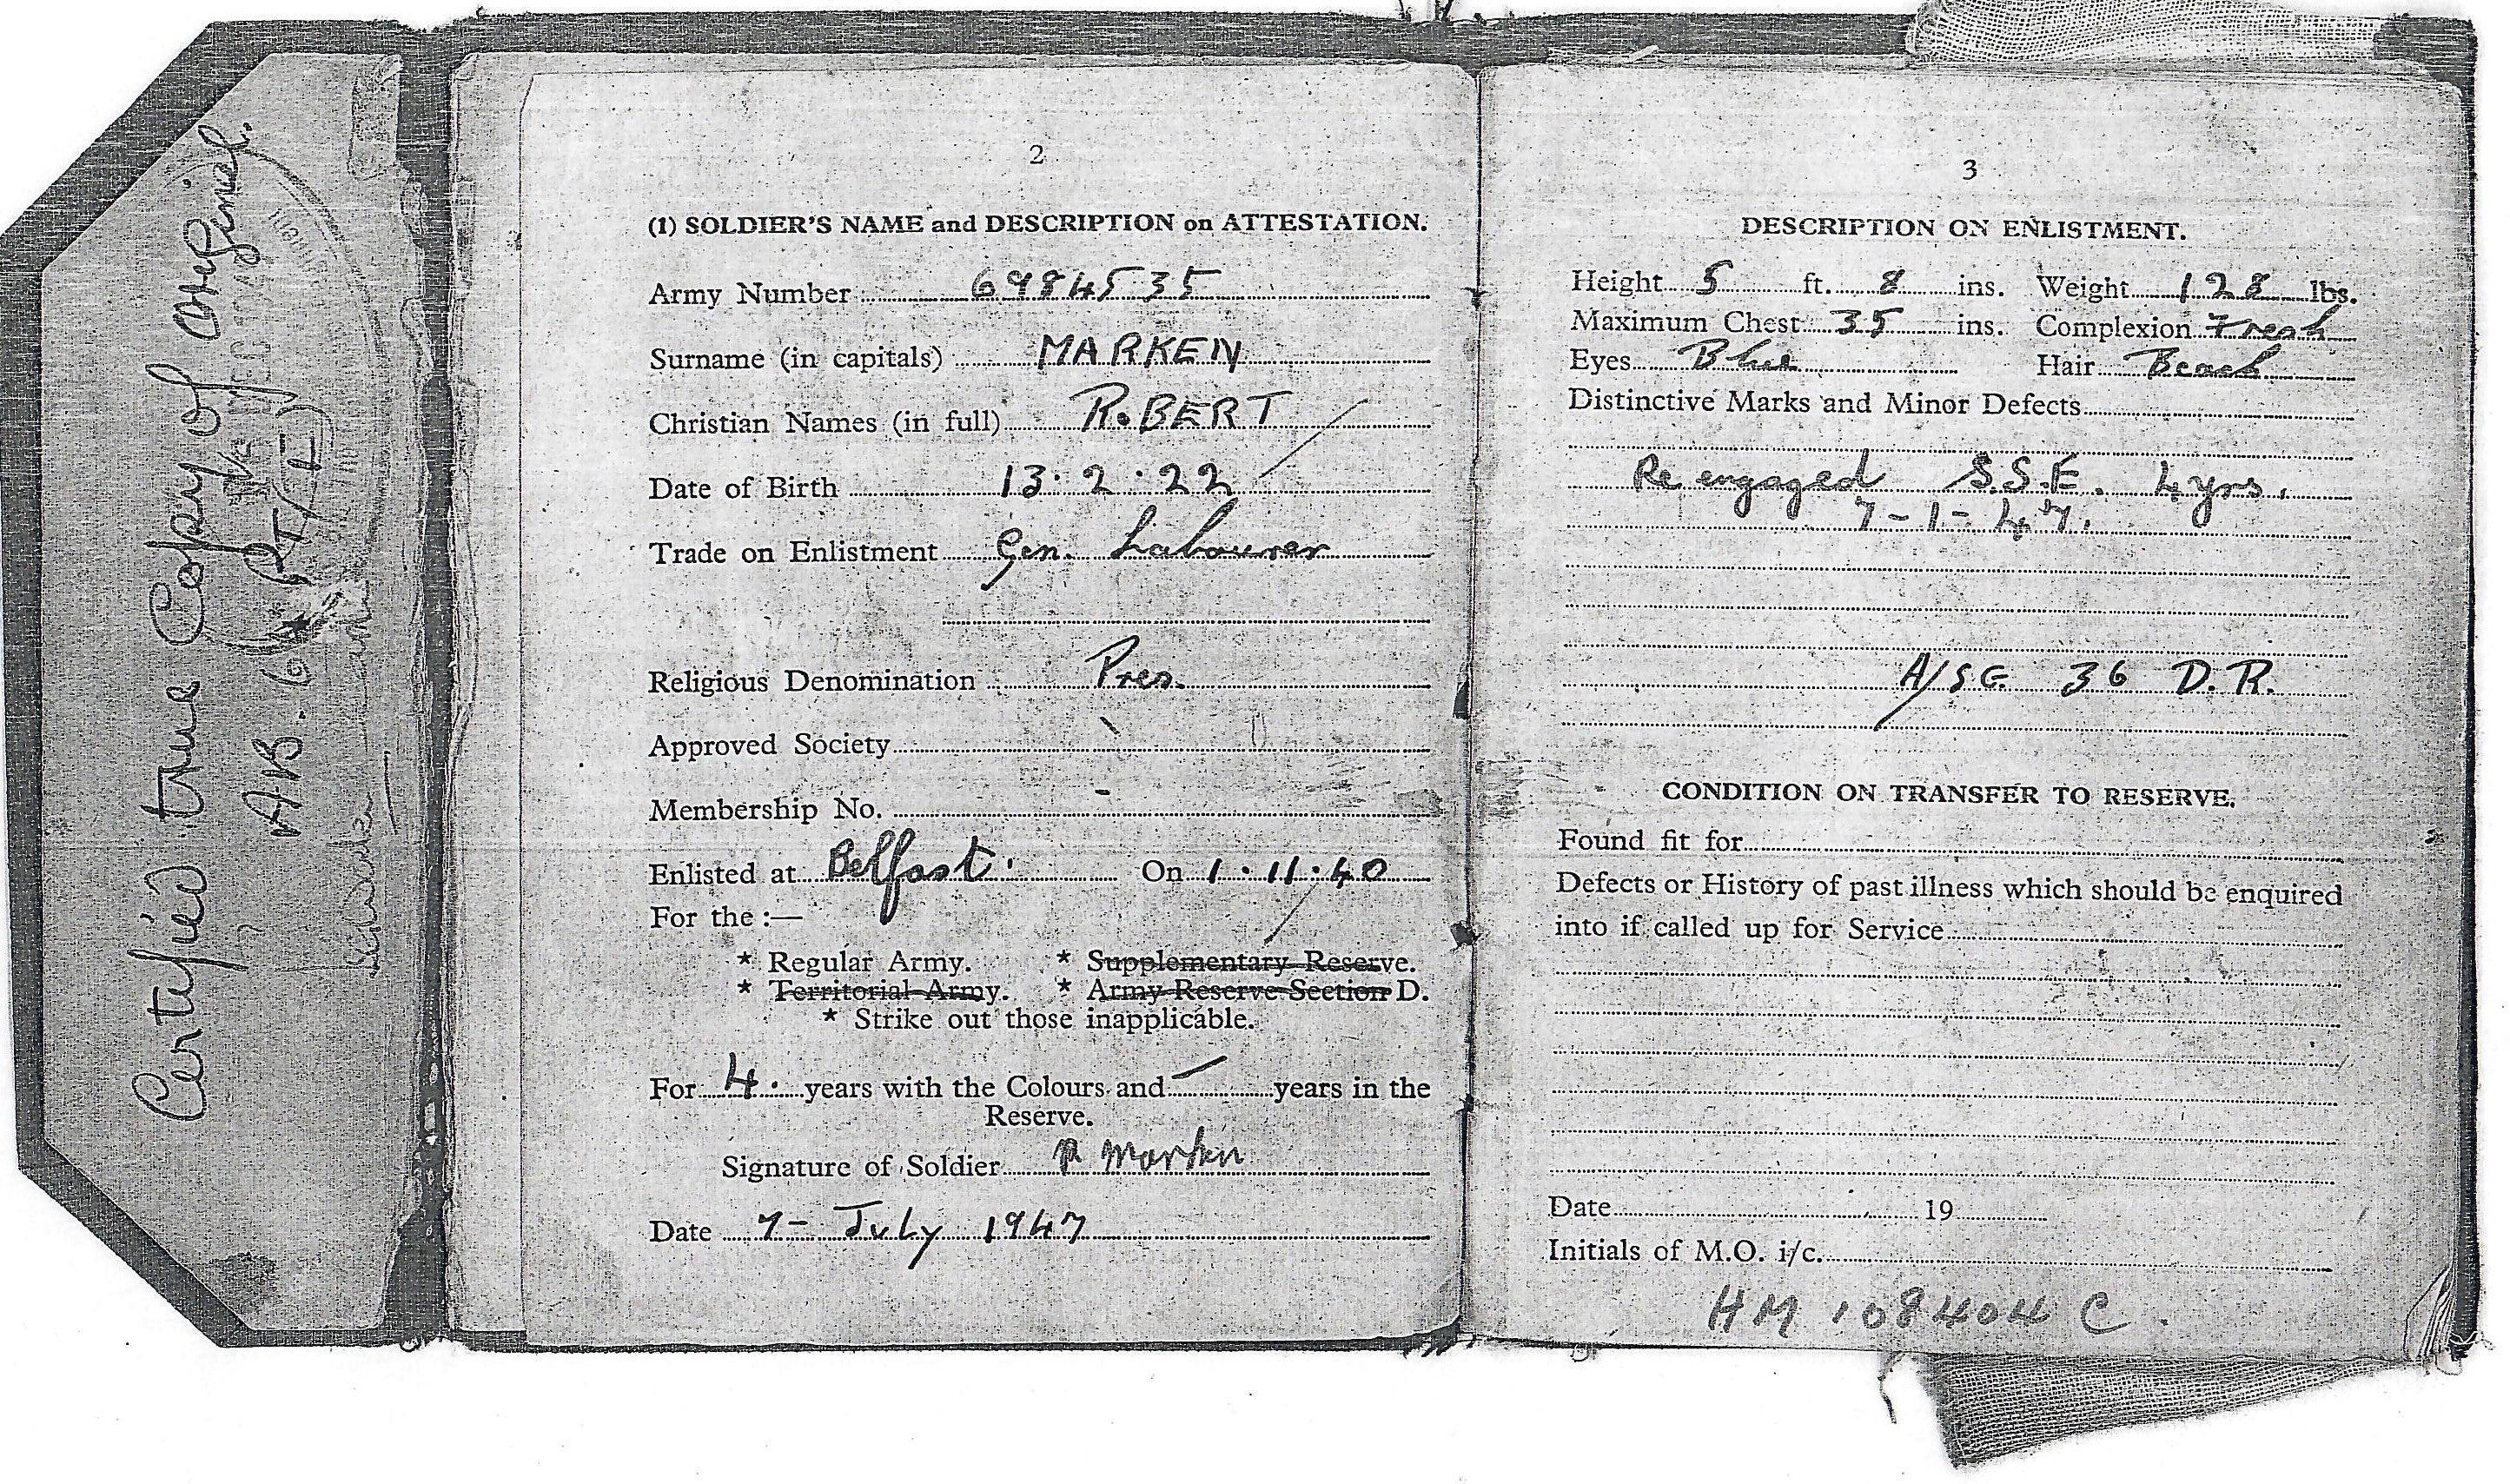 Certified true Copy of Original.
A.B. 64 (PT/I)
2
(1) SOLDIER'S NAME and DESCRIPTION on ATTESTATION.
Army Number 6984535
Surname (in capitals) MARKEN
Christian Names (in full) ROBERT
Date of Birth 13.2.22
Trade on Enlistment Gen. Labourer
Religious Denomination Pres.
Approved Society
Membership No. -
Enlisted at Belfast. On 1.11.40
For the :—
* Regular Army. * Supplementary Reserve.
* Territorial Army. * Army Reserve Section D.
* Strike out those inapplicable.
For 4. years with the Colours and — years in the
Reserve.
Signature of Soldier R Marken
Date 7- July 1947
3
DESCRIPTION ON ENLISTMENT.
Height 5 ft. 8 ins. Weight 128 lbs.
Maximum Chest 35 ins. Complexion Fresh
Eyes Blue Hair
Distinctive Marks and Minor Defects
Re engaged S.S.E. 4 yrs.
7-1-47.
A/SG 36 D.R.
CONDITION ON TRANSFER TO RESERVE.
Found fit for
Defects or History of past illness which should be enquired
into if called up for Service
Date 19
Initials of M.O. i/c.
HM 108404 C.